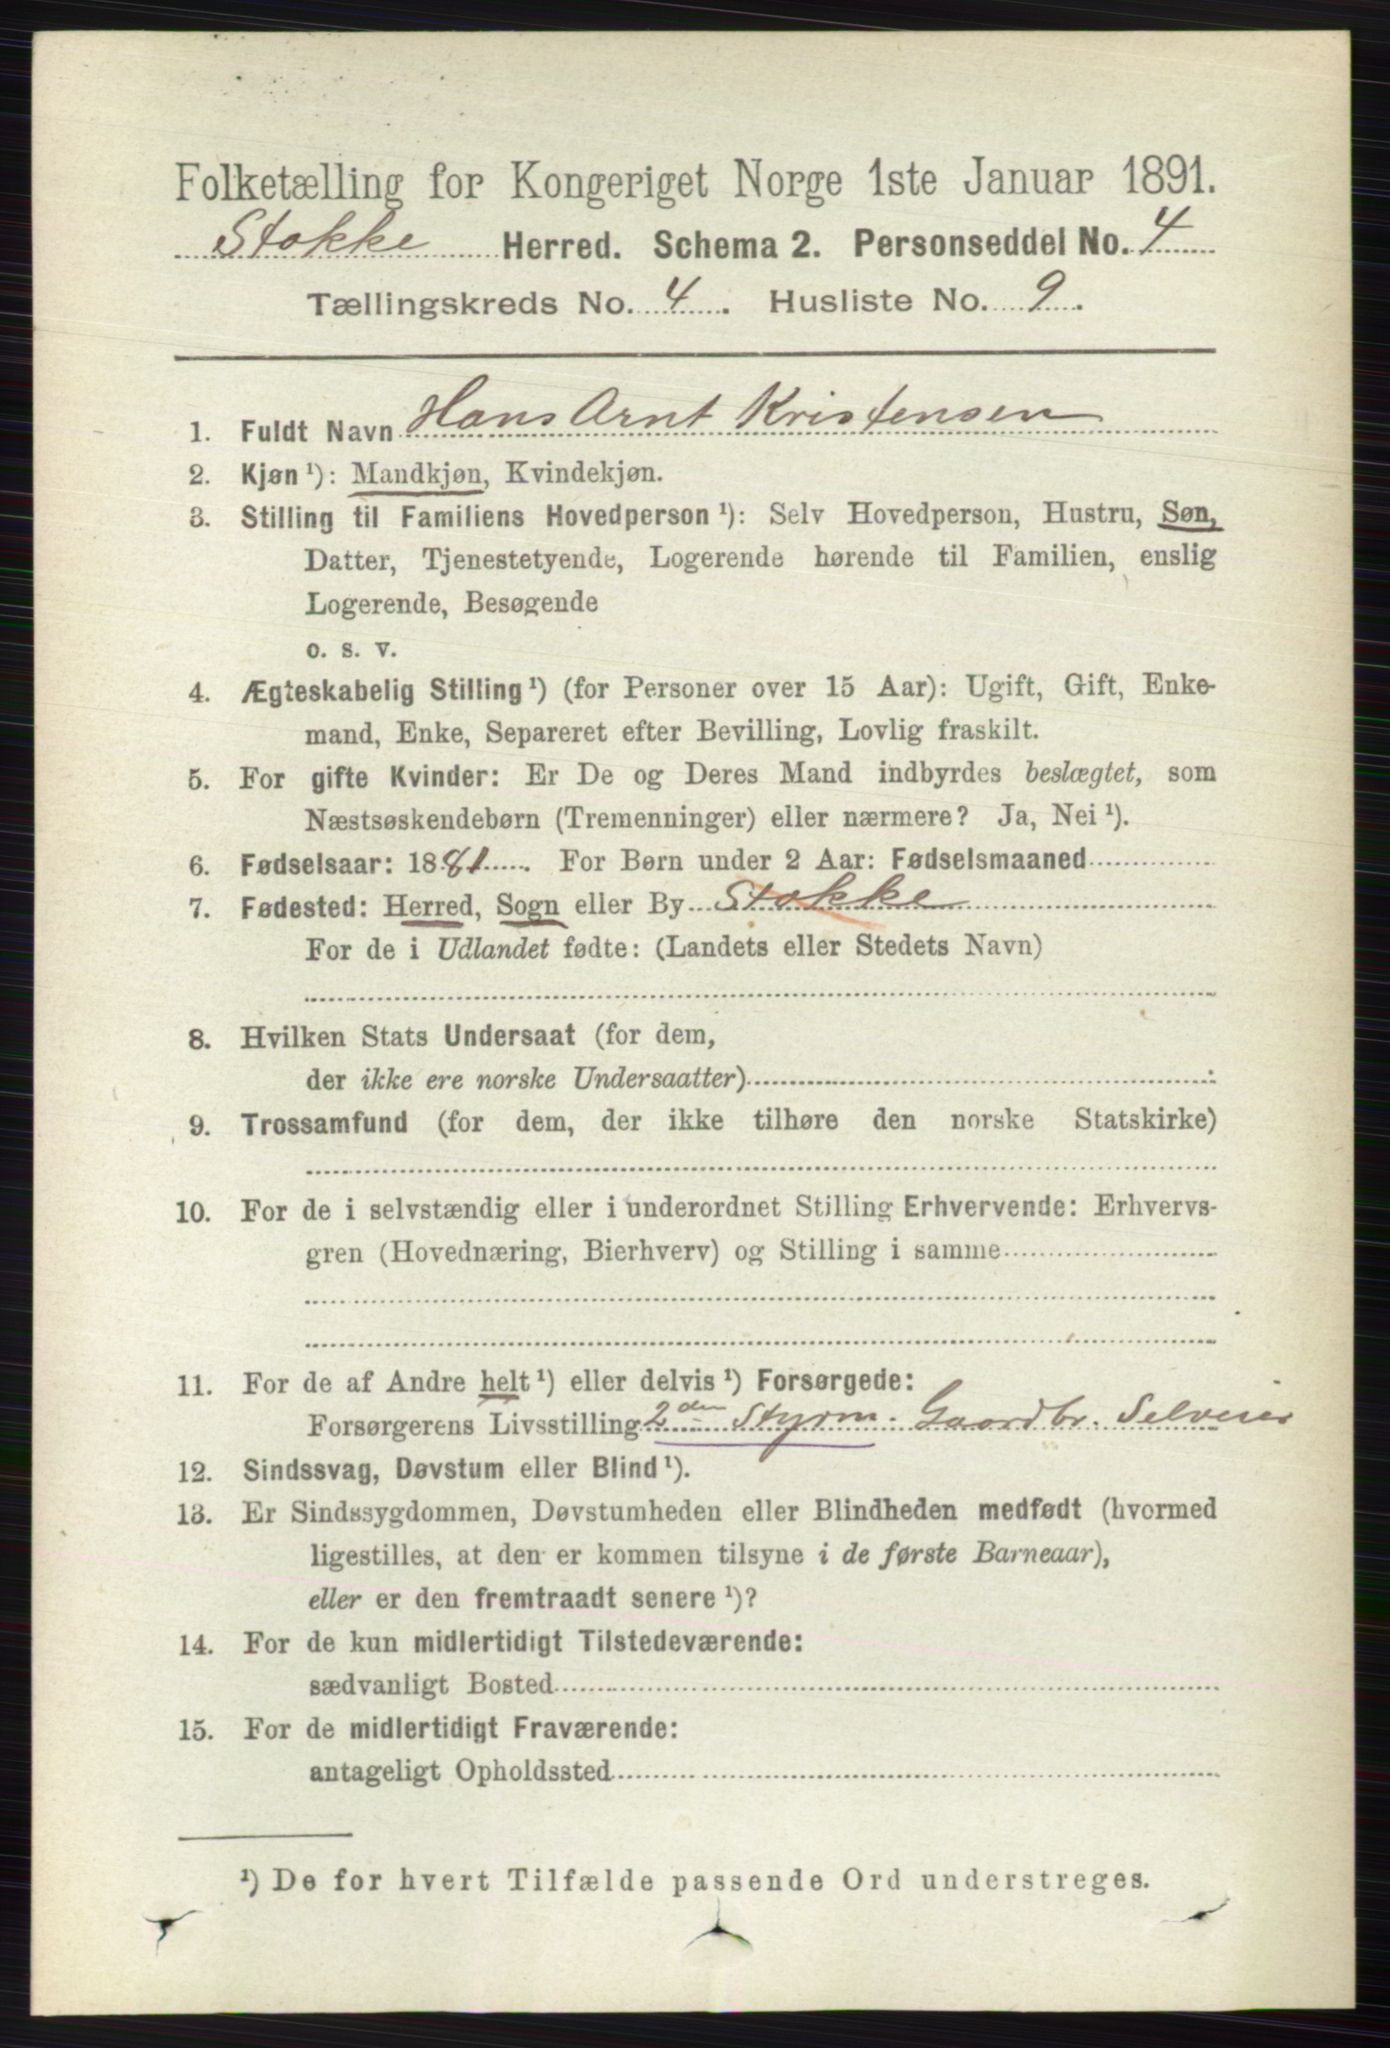 Folketælling for Kongeriget Norge 1ste Januar 1891.
Stokke Herred. Schema 2. Personseddel No. 4
Tællingskreds No. 4. Husliste No. 9.
1. Fuldt Navn Hans Arnt Kristensen
2. Kjøn ¹): Mandkjøn, Kvindekjøn.
3. Stilling til Familiens Hovedperson ¹): Selv Hovedperson, Hustru, Søn,
Datter, Tjenestetyende, Logerende hørende til Familien, enslig
Logerende, Besøgende
o. s. v.
4. Ægteskabelig Stilling ¹) (for Personer over 15 Aar): Ugift, Gift, Enke-
mand, Enke, Separeret efter Bevilling, Lovlig fraskilt.
5. For gifte Kvinder: Er De og Deres Mand indbyrdes beslægtet, som
Næstsøskendebørn (Tremenninger) eller nærmere? Ja, Nei ¹).
6. Fødselsaar: 1881. For Børn under 2 Aar: Fødselsmaaned
7. Fødested: Herred, Sogn eller By Stokke
For de i Udlandet fødte: (Landets eller Stedets Navn)
8. Hvilken Stats Undersaat (for dem,
der ikke ere norske Undersaatter)
9. Trossamfund (for dem, der ikke tilhøre den norske Statskirke)
10. For de i selvstændig eller i underordnet Stilling Erhvervende: Erhvervs-
gren (Hovednæring, Bierhverv) og Stilling i samme
11. For de af Andre helt ¹) eller delvis ¹) Forsørgede:
Forsørgerens Livsstilling 2den Styrm. Gaardbr. Selveier
12. Sindssvag, Døvstum eller Blind ¹).
13. Er Sindssygdommen, Døvstumheden eller Blindheden medfødt (hvormed
ligestilles, at den er kommen tilsyne i de første Barneaar),
eller er den fremtraadt senere ¹)?
14. For de kun midlertidigt Tilstedeværende:
sædvanligt Bosted
15. For de midlertidigt Fraværende:
antageligt Opholdssted
¹) De for hvert Tilfælde passende Ord understreges.